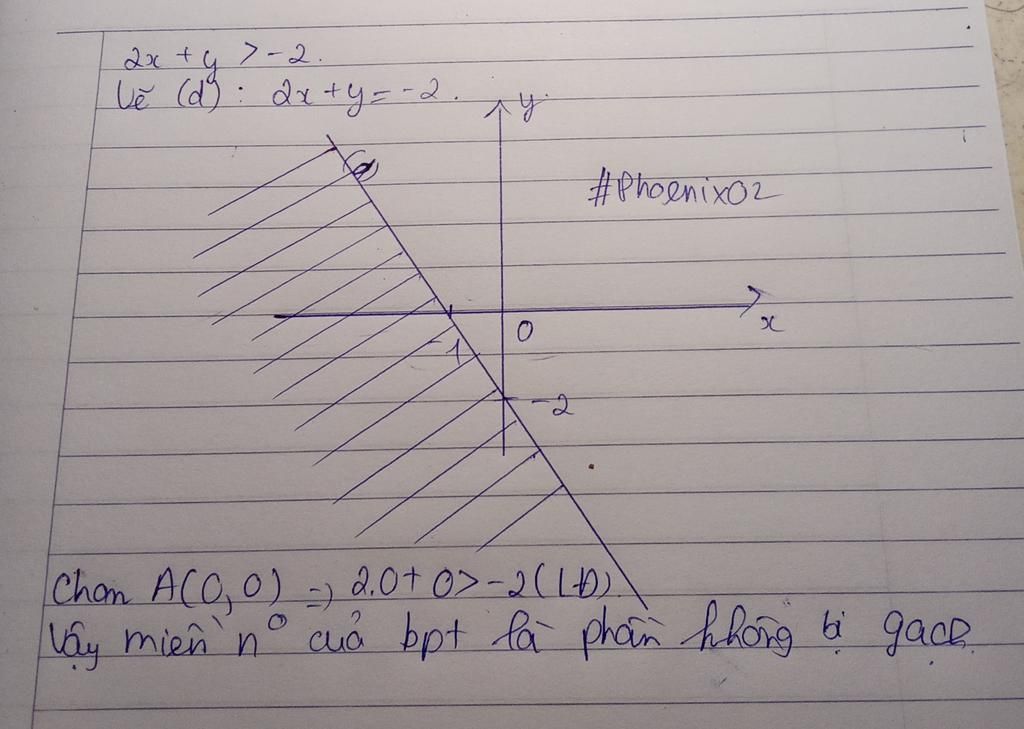 2x + y > -2.
Vẽ (d): 2x + y = -2.
y
(d)
#Phoenix02
x
0
-1
-2
Chọn A(0,0) => 2.0 + 0 > -2 (LĐ).
Vậy miền n° của bpt là phần không bị gạch.